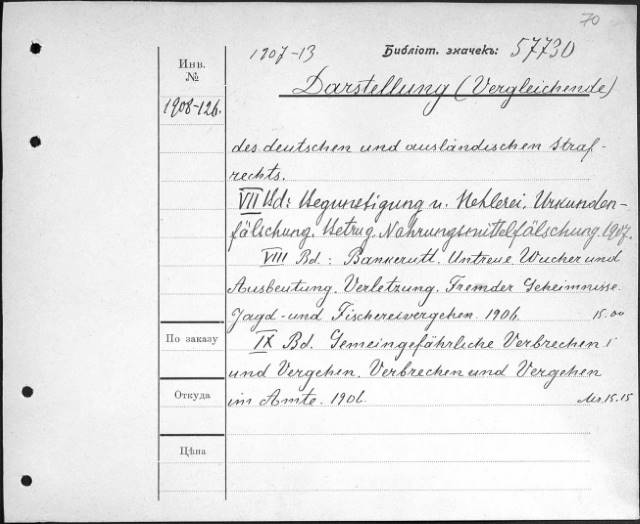 70
1907-13 Библіот. значекъ: 57730
Инв. №
Darstellung (Vergleichende)
1908-126.
des deutschen und ausländischen Straf-
rechts.
VII Bd: Begünstigung u. Hehlerei, Urkunden-
fälschung. Betrug. Nahrungsmittelfälschung. 1907.
VIII Bd.: Bankerutt. Untreue Wucher und
Ausbeutung. Verletzung. Fremder Geheimnisse.
Jagd- und Fischereivergehen. 1906. 15.00
По заказу
IX Bd. Gemeingefährliche Verbrechen
und Vergehen. Verbrechen und Vergehen
Откуда
im Amte. 1906. 15.15
Цѣна